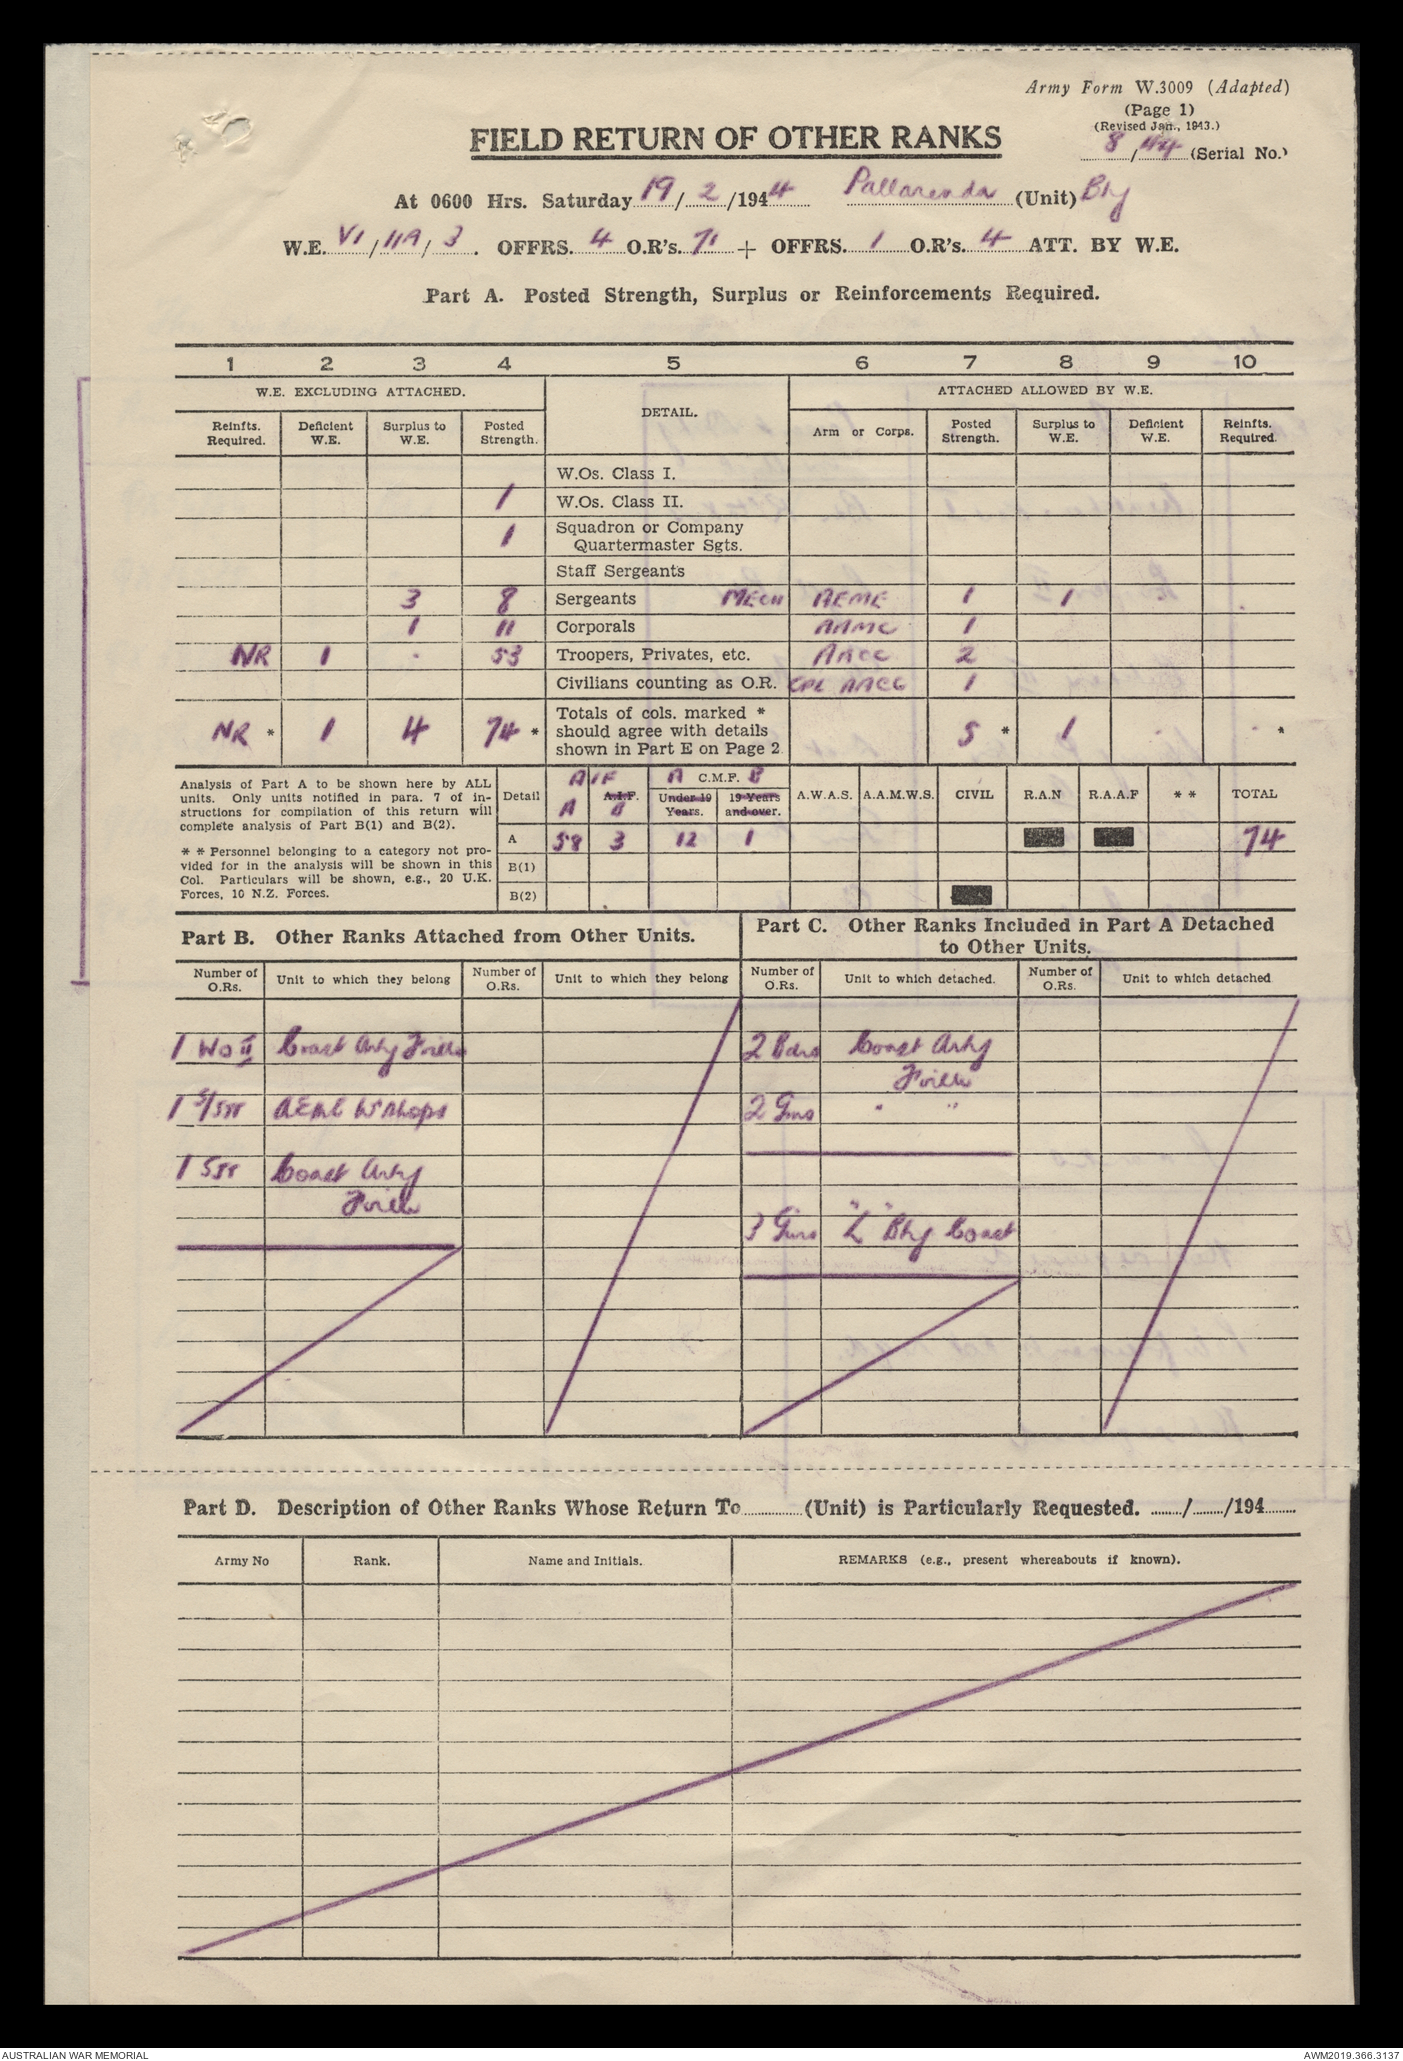 Army Form W.3009 (Adapted)
(Page 1)
(Revised Jan., 1943.)
8/44 (Serial No.)
FIELD RETURN OF OTHER RANKS
At 0600 Hrs. Saturday 19/2/1944 Pallarenda (Unit) Bty
W.E. VI/11A/3. OFFRS. 4 O.R's. 71 + OFFRS. 1 O.R's. 4 ATT. BY W.E.
Part A. Posted Strength, Surplus or Reinforcements Required.
1 2 3 4 5 6 7 8 9 10
W.E. EXCLUDING ATTACHED. DETAIL. ATTACHED ALLOWED BY W.E.
Reinfts. Required. Deficient W.E. Surplus to W.E. Posted Strength. Arm or Corps. Posted Strength. Surplus to W.E. Deficient W.E. Reinfts. Required.
W.Os. Class I.
1 W.Os. Class II.
1 Squadron or Company Quartermaster Sgts.
Staff Sergeants
3 8 Sergeants Mech AEME 1 1
1 11 Corporals AAMC 1
NR 1 . 53 Troopers, Privates, etc. AACC 2
Civilians counting as O.R. CPL AACC 1
NR * 1 4 74 * Totals of cols. marked * should agree with details shown in Part E on Page 2 5 * 1 *
Analysis of Part A to be shown here by ALL
units. Only units notified in para. 7 of in-
structions for compilation of this return will
complete analysis of Part B(1) and B(2).
* * Personnel belonging to a category not pro-
vided for in the analysis will be shown in this
Col. Particulars will be shown, e.g., 20 U.K.
Forces, 10 N.Z. Forces.
AIF A C.M.F. B
Detail A A.I.F. B Under 19 Years. 19 Years and over. A.W.A.S. A.A.M.W.S. CIVIL R.A.N R.A.A.F * * TOTAL
A 58 3 12 1 74
B(1)
B(2)
Part B. Other Ranks Attached from Other Units.
Part C. Other Ranks Included in Part A Detached
to Other Units.
Number of O.Rs. Unit to which they belong Number of O.Rs. Unit to which they belong Number of O.Rs. Unit to which detached. Number of O.Rs. Unit to which detached
1 WO II Coast Arty 2 Bdrs Coast Arty
1 S/Sgt AEME W'shops 2 Gnrs " "
1 Sgt Coast Arty
3 Gnrs "L" Bty Coast
Part D. Description of Other Ranks Whose Return To ............ (Unit) is Particularly Requested. ....../....../194......
Army No Rank. Name and Initials. REMARKS (e.g., present whereabouts if known).
AUSTRALIAN WAR MEMORIAL AWM2019.366.3137